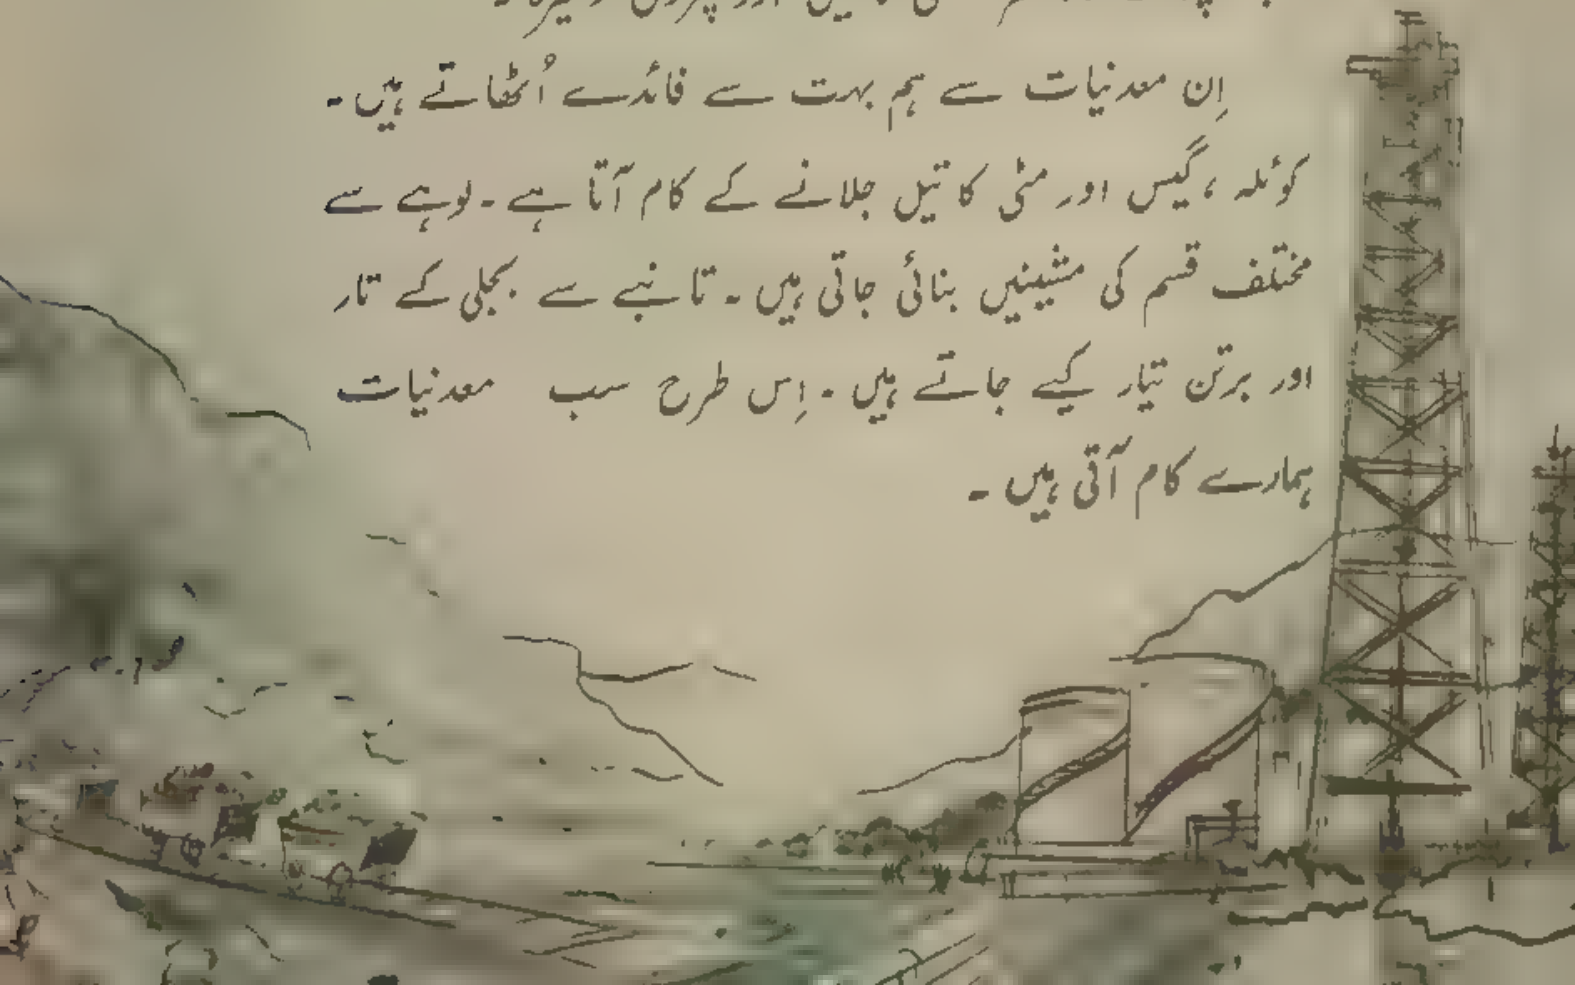 اِن معدنیات سے ہم بہت سے فائدے اُٹھاتے ہیں۔
کوئلہ، گیس اور مٹی کا تیل جلانے کے کام آتا ہے۔ لوہے سے
مختلف قسم کی مشینیں بنائی جاتی ہیں۔ تانبے سے بجلی کے تار
اور برتن تیار کیے جاتے ہیں۔ اِس طرح سب معدنیات
ہمارے کام آتی ہیں۔